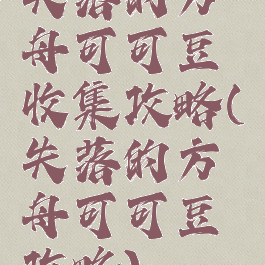 失落的方
舟可可豆
收集攻略(
失落的方
舟可可豆
攻略)